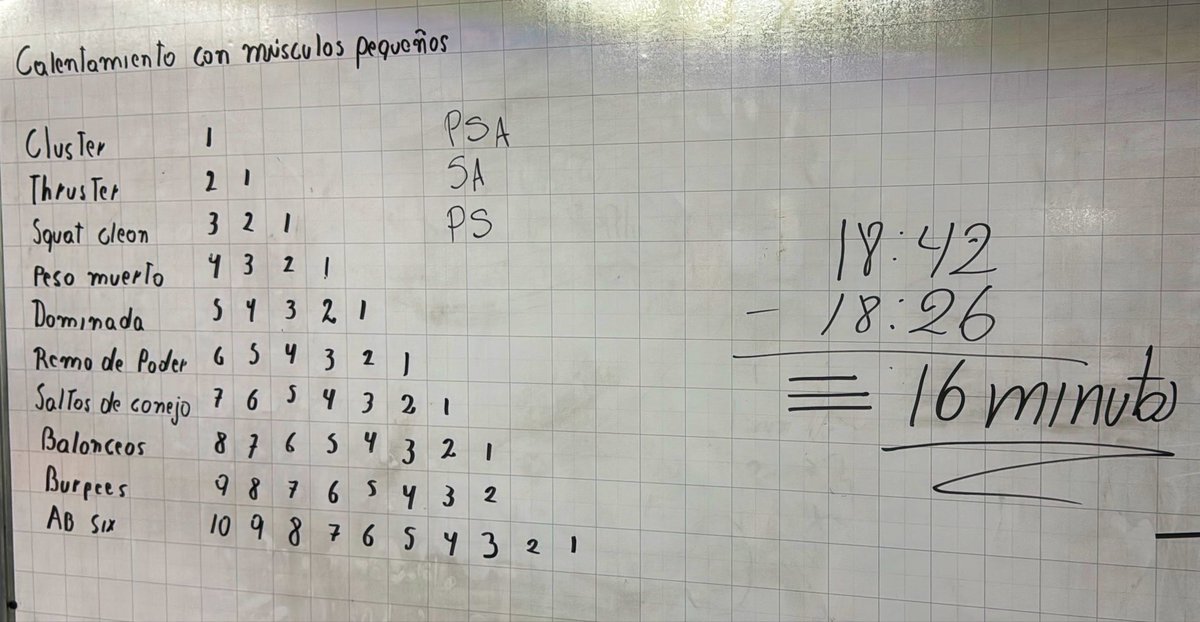 Calentamiento con músculos pequeños
Cluster 1
Thruster 2 1
Squat cleon 3 2 1
Peso muerto 4 3 2 1
Dominada 5 4 3 2 1
Remo de Poder 6 5 4 3 2 1
Saltos de conejo 7 6 5 4 3 2 1
Balonceos 8 7 6 5 4 3 2 1
Burpees 9 8 7 6 5 4 3 2
AB six 10 9 8 7 6 5 4 3 2 1
PSA
SA
PS
18:42
- 18:26
= 16 minuto